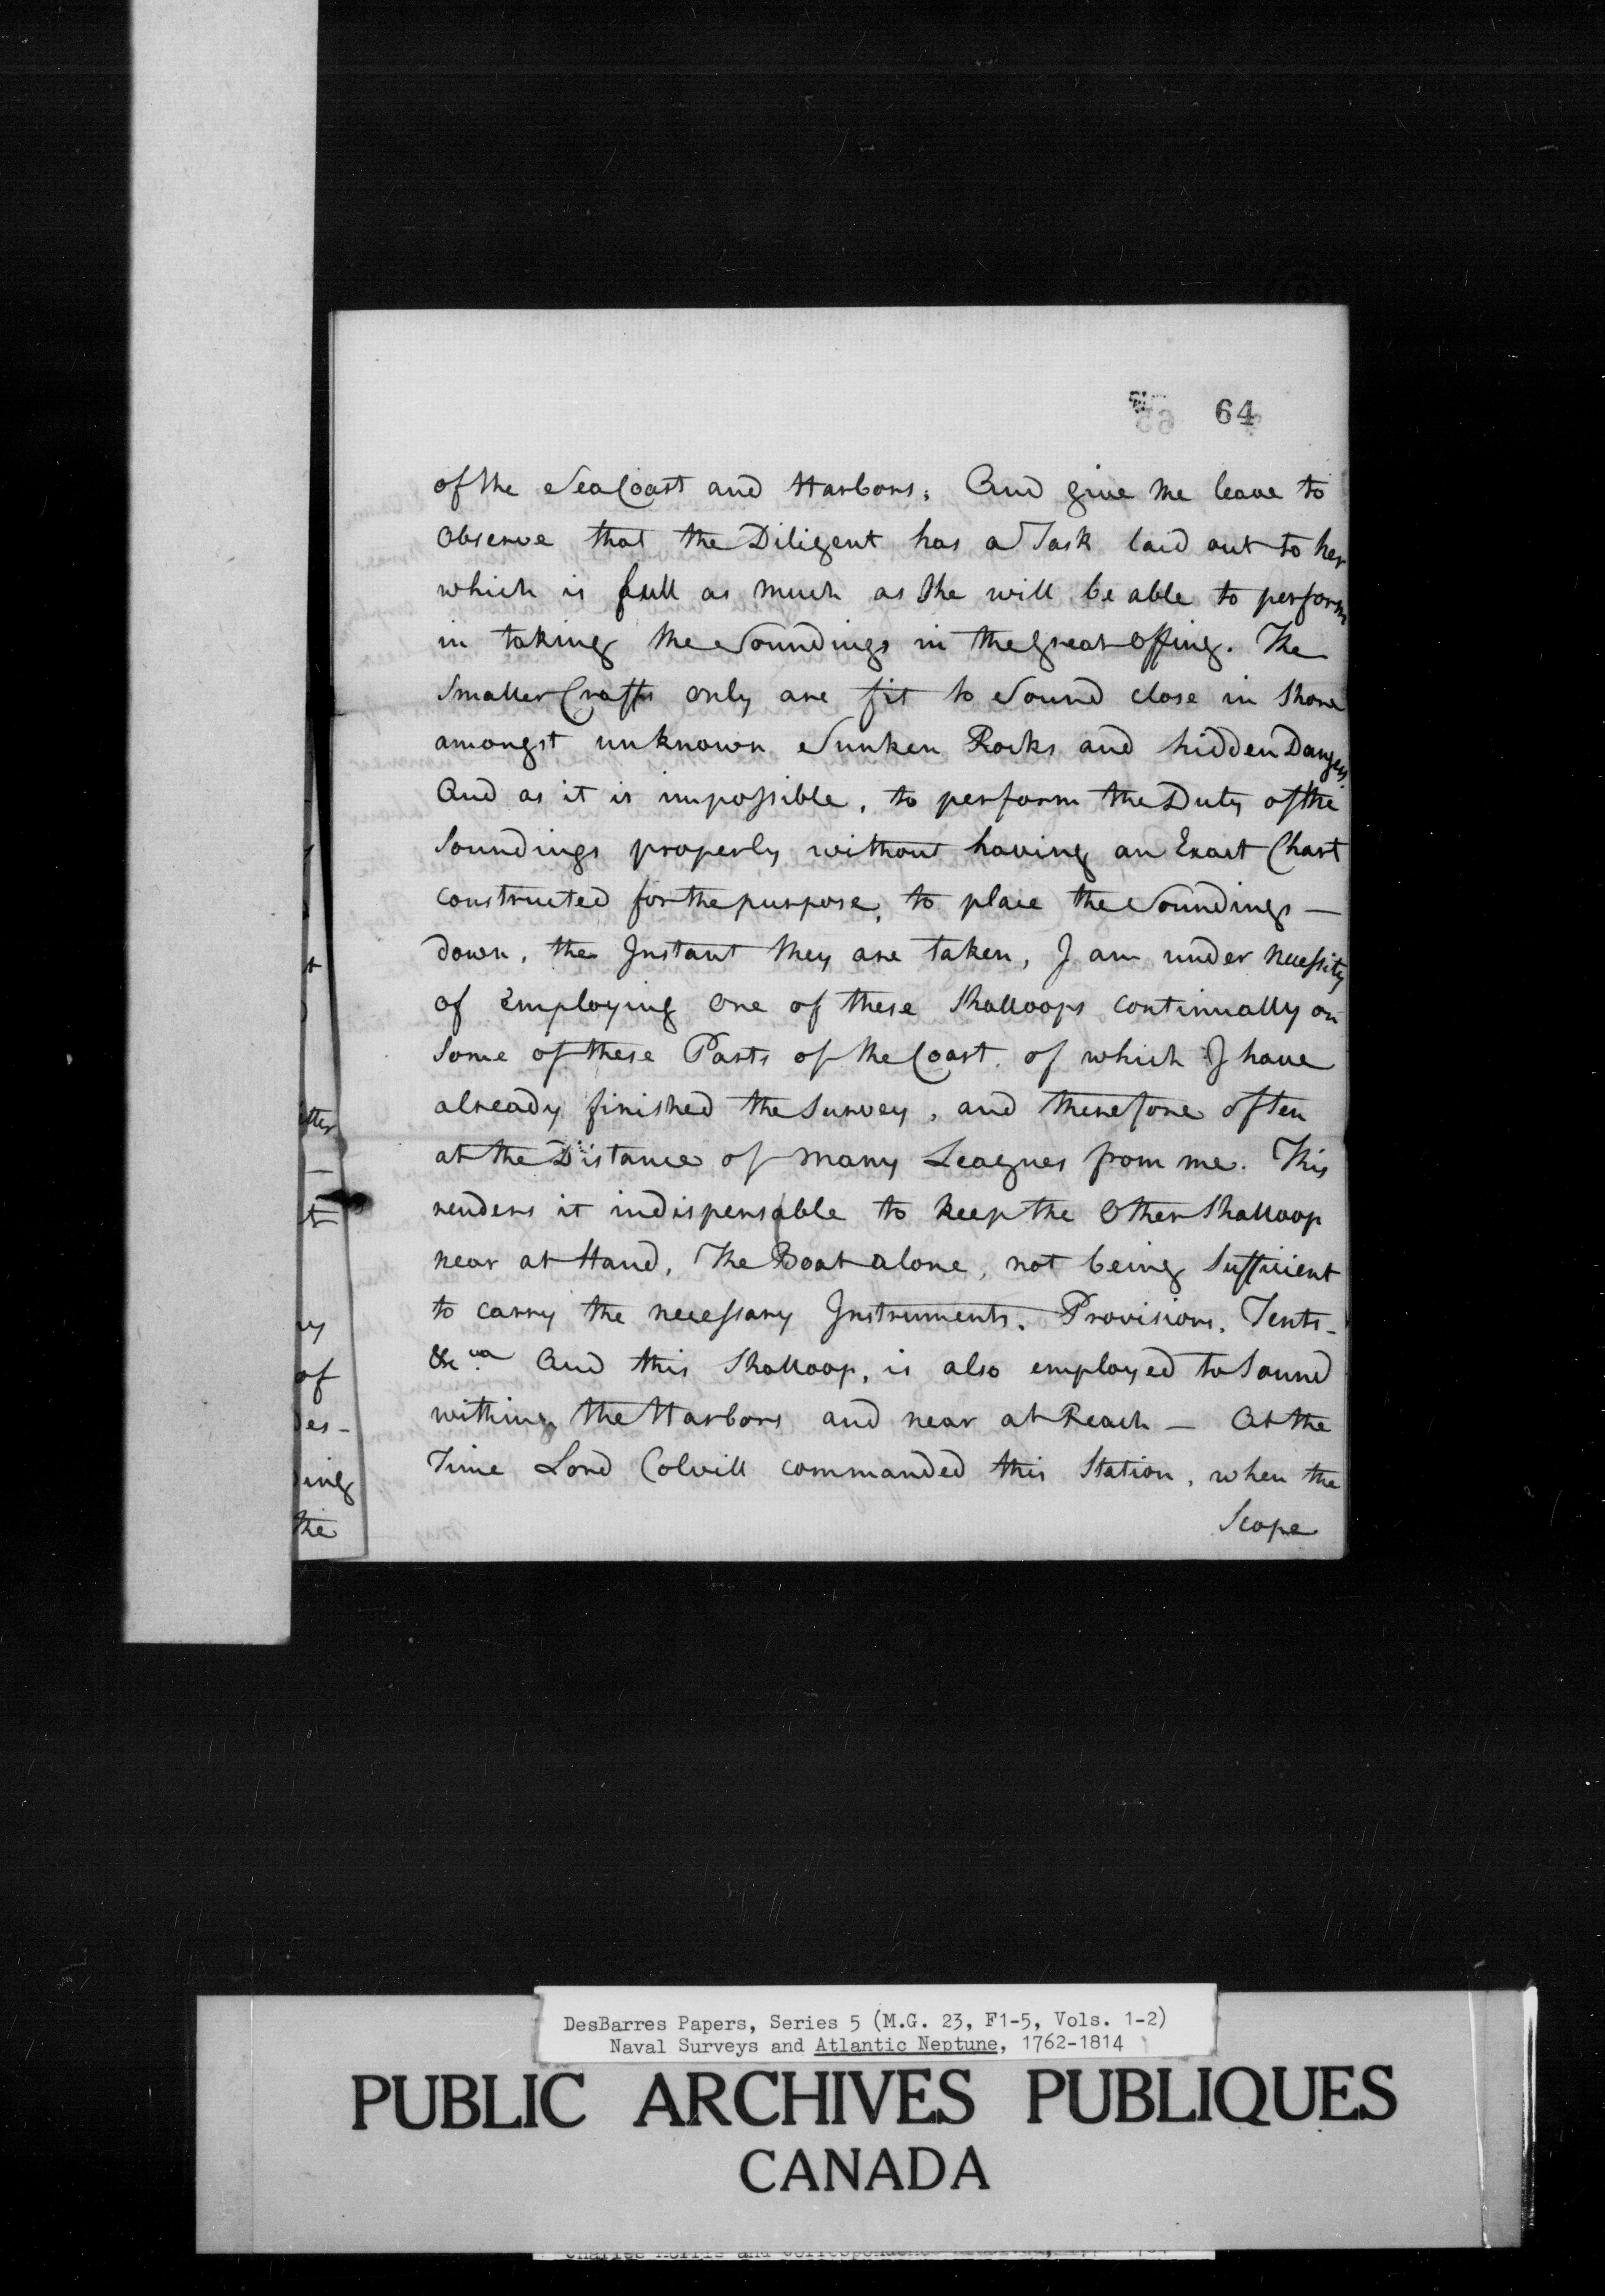 64
of the Sea Coast and Harbors; And give me leave to
observe that the Diligent has a Task laid out to her
which is full as much as she will be able to perform
in taking the Soundings in the great Offing. The
Smaller Crafts only are fit to Sound close in Shore
amongst unknown Sunken Rocks and hidden Dangers
And as it is impossible, to perform the Duty of the
Soundings properly without having an Exact Chart
constructed for the purpose, to place the Soundings —
down, the Instant they are taken, I am under necessity
of Employing one of these Shalloops continually on
Some of these Parts of the Coast, of which I have
already finished the Survey, and therefore often
at the Distance of many Leagues from me. This
renders it indispensable to keep the Other Shalloop
near at Hand, The Boat alone, not being Sufficient
to carry the necessary Instruments, Provisions, Tents -
&ca And this Shalloop, is also employed to Sound
within the Harbors and near at Reach — At the
Time Lord Colvill commanded this Station, when the
Scope
ny
of
Des-
ding
the
DesBarres Papers, Series 5 (M.G. 23, F1-5, Vols. 1-2)
Naval Surveys and Atlantic Neptune, 1762-1814
PUBLIC ARCHIVES PUBLIQUES
CANADA